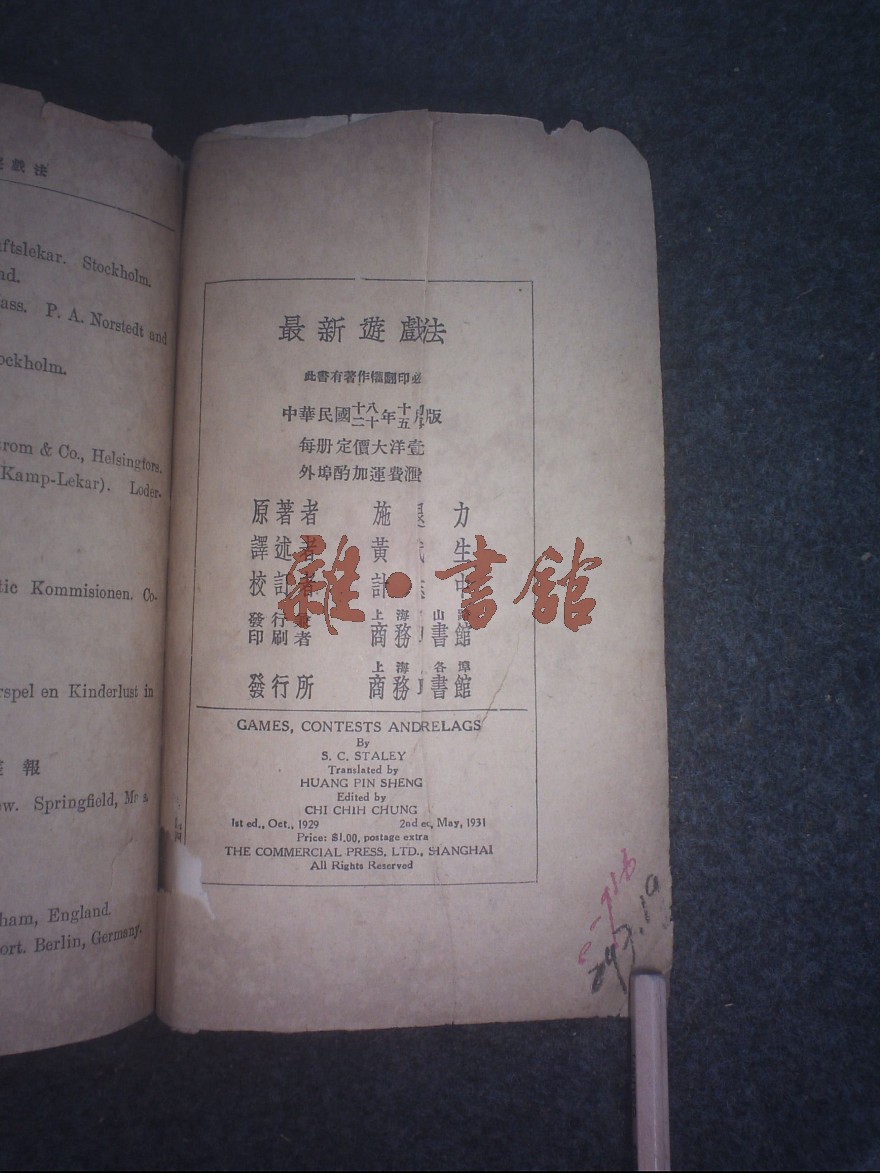 戲法
ftslekar. Stockholm.
nd.
ass. P. A. Norstedt and
ockholm.
rom & Co., Helsingfors.
Kamp-Lekar). Loder-
tic Kommisionen. Co-
rspel en Kinderlust in
報
ew. Springfield,
ham, England.
ort. Berlin, Germany.
最新遊戲法
此書有著作權翻印必
中華民國十八年十月
二十年五月
版
每册定價大洋壹
外埠酌加運費滙
原著者 施 力
譯述者 黃 生
校訂者 計 中
發行兼印刷者 上海 山路 商務 書館
發行所 上海 各埠 商務 書館
GAMES, CONTESTS ANDRELAGS
By
S. C. STALEY
Translated by
HUANG PIN SHENG
Edited by
CHI CHIH CHUNG
1st ed., Oct., 1929 2nd ed, May, 1931
Price: $1.00, postage extra
THE COMMERCIAL PRESS, LTD., SHANGHAI
All Rights Reserved
雜·書館